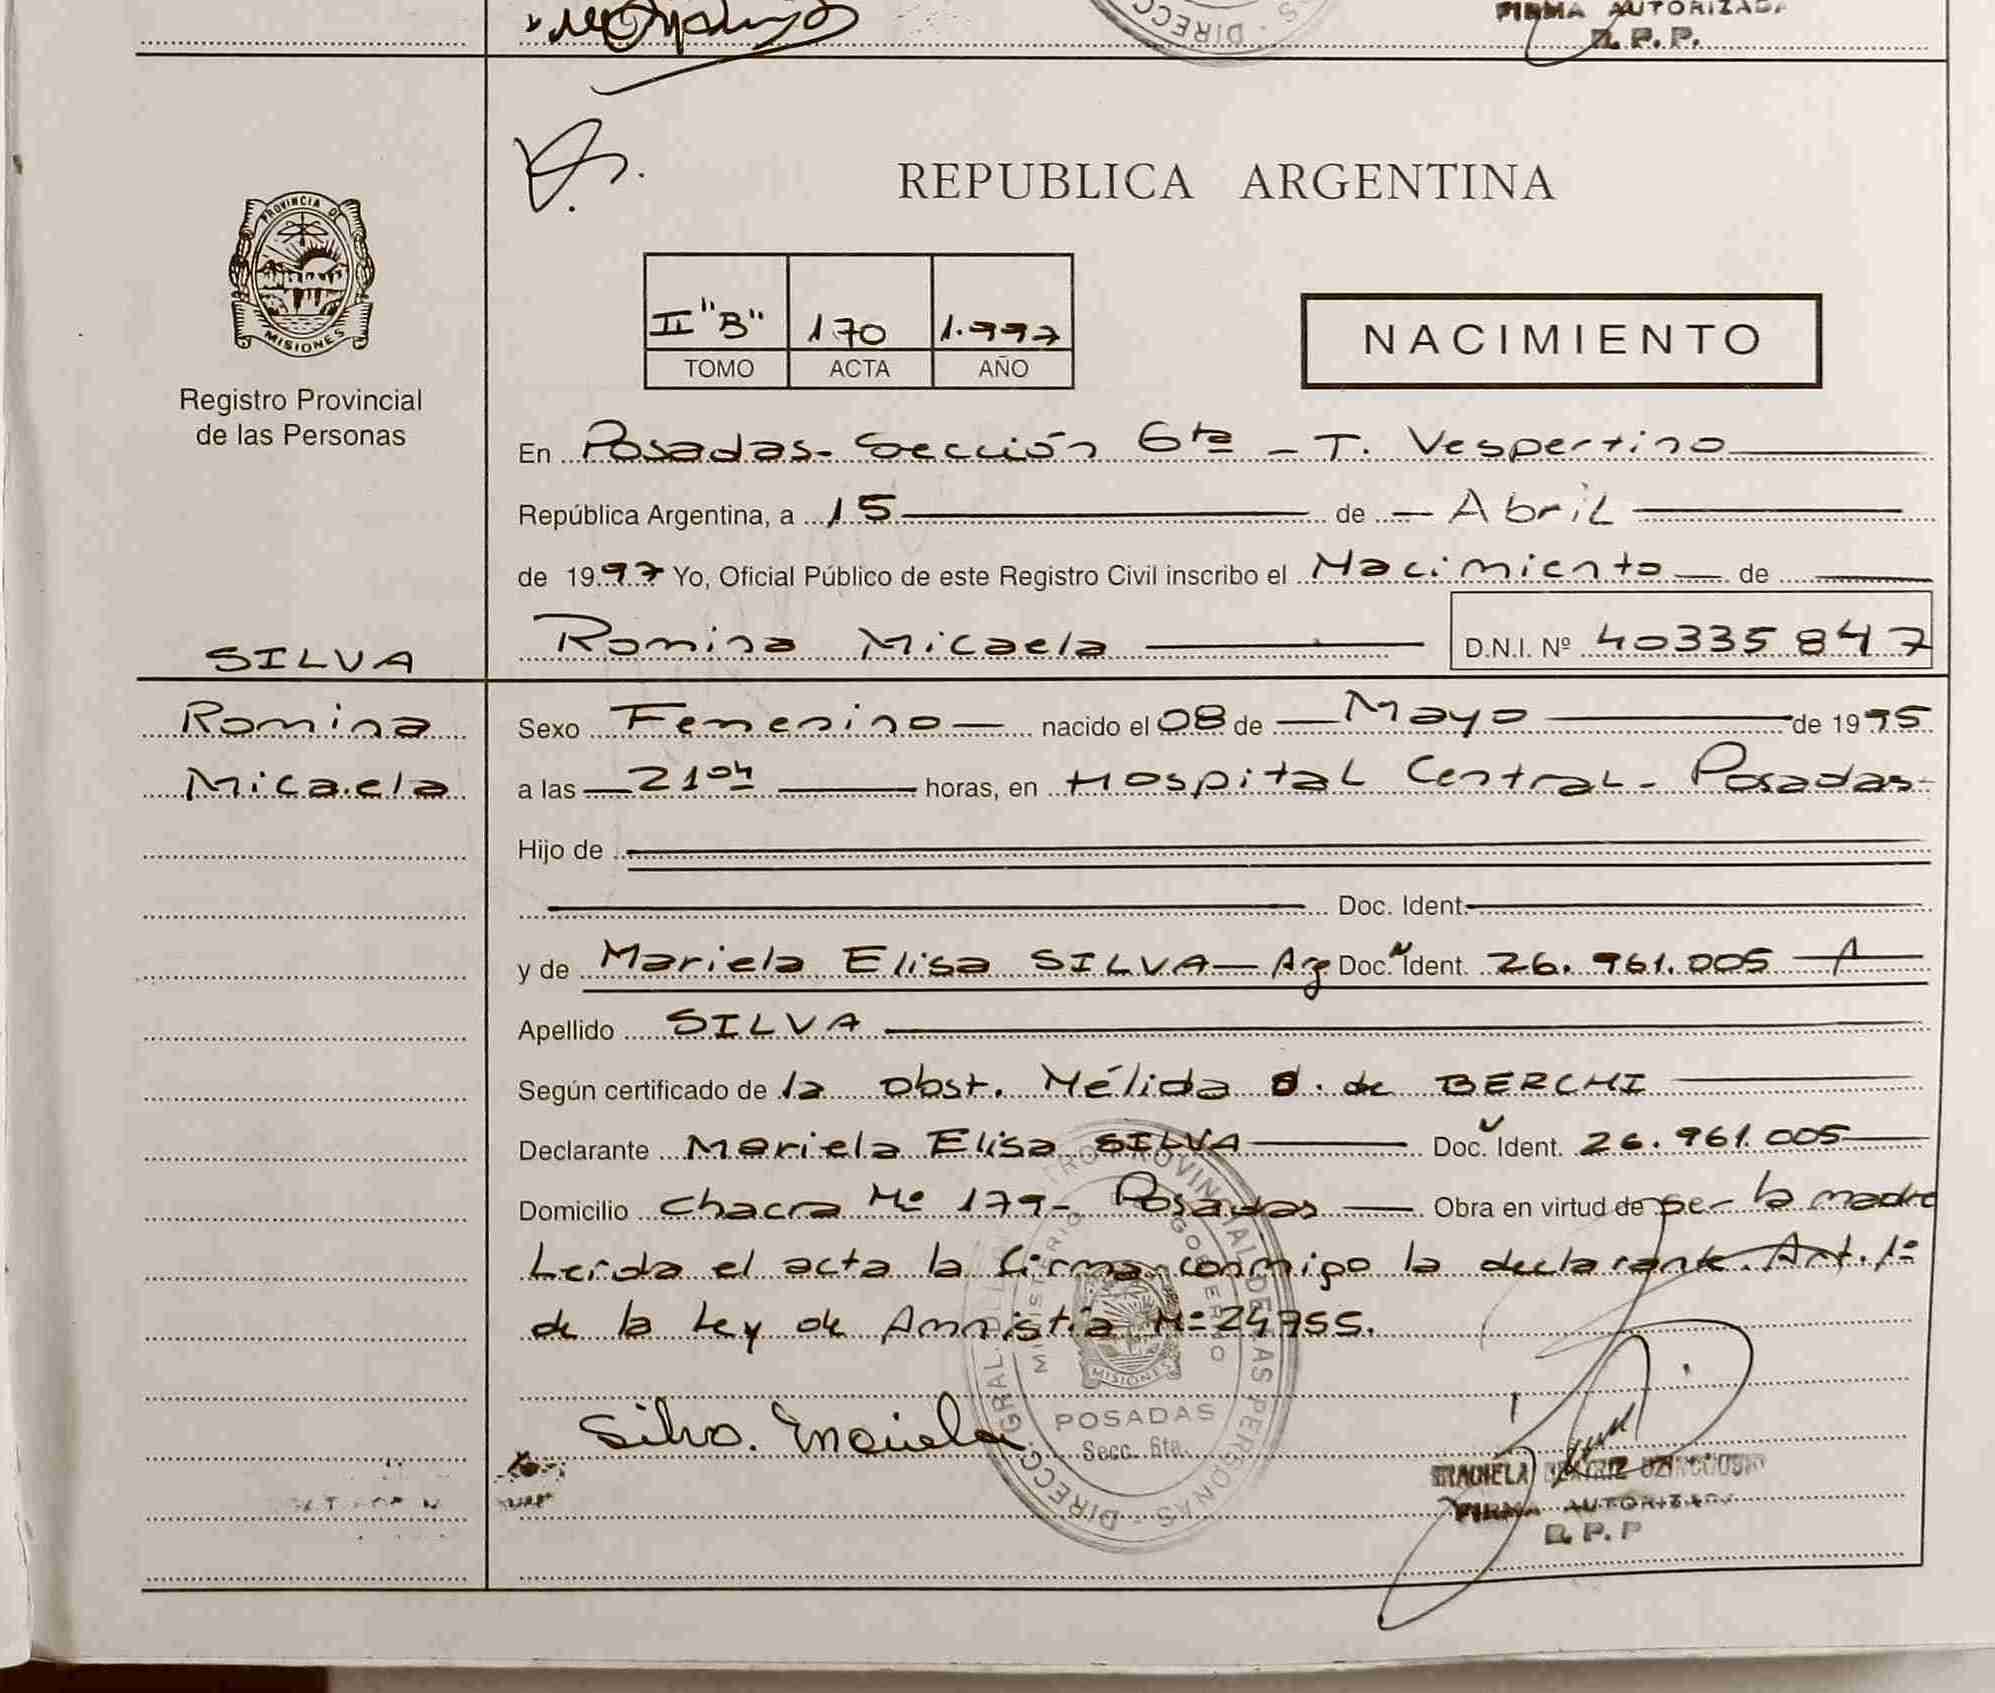 DIRECC
FIRMA AUTORIZADA
R. P. P.
REPUBLICA ARGENTINA
PROVINCIA DE
MISIONES
Registro Provincial
de las Personas
II "B" 170 1.997
TOMO ACTA AÑO
NACIMIENTO
En Posadas - Sección 6ta - T. Vespertino
República Argentina, a 15 de Abril
de 1997 Yo, Oficial Público de este Registro Civil inscribo el Nacimiento de
SILVA Romina Micaela D.N.I. Nº 40335847
Romina Sexo Femenino nacido el 08 de Mayo de 1995
Micaela a las 21 horas, en Hospital Central - Posadas -
Hijo de
Doc. Ident.
y de Mariela Elisa SILVA - Arg Doc. Ident. 26.961.005
Apellido SILVA
Según certificado de la obst. Nélida de BERCHI
Declarante Mariela Elisa SILVA Doc. Ident. 26.961.005
Domicilio Chacra Nº 179 - Posadas Obra en virtud de ser la madre
Leída el acta la firma conmigo la declarante. Art. 1º
de la Ley de Amnistía Nº 24755.
DIRECC. GRAL. DEL REGISTRO PROVINCIAL DE LAS PERSONAS
MINISTERIO GOBIERNO
MISIONES
POSADAS
Secc. 6ta.
Silva. Mariela
GRACIELA BEATRIZ
FIRMA AUTORIZADA
R. P. P